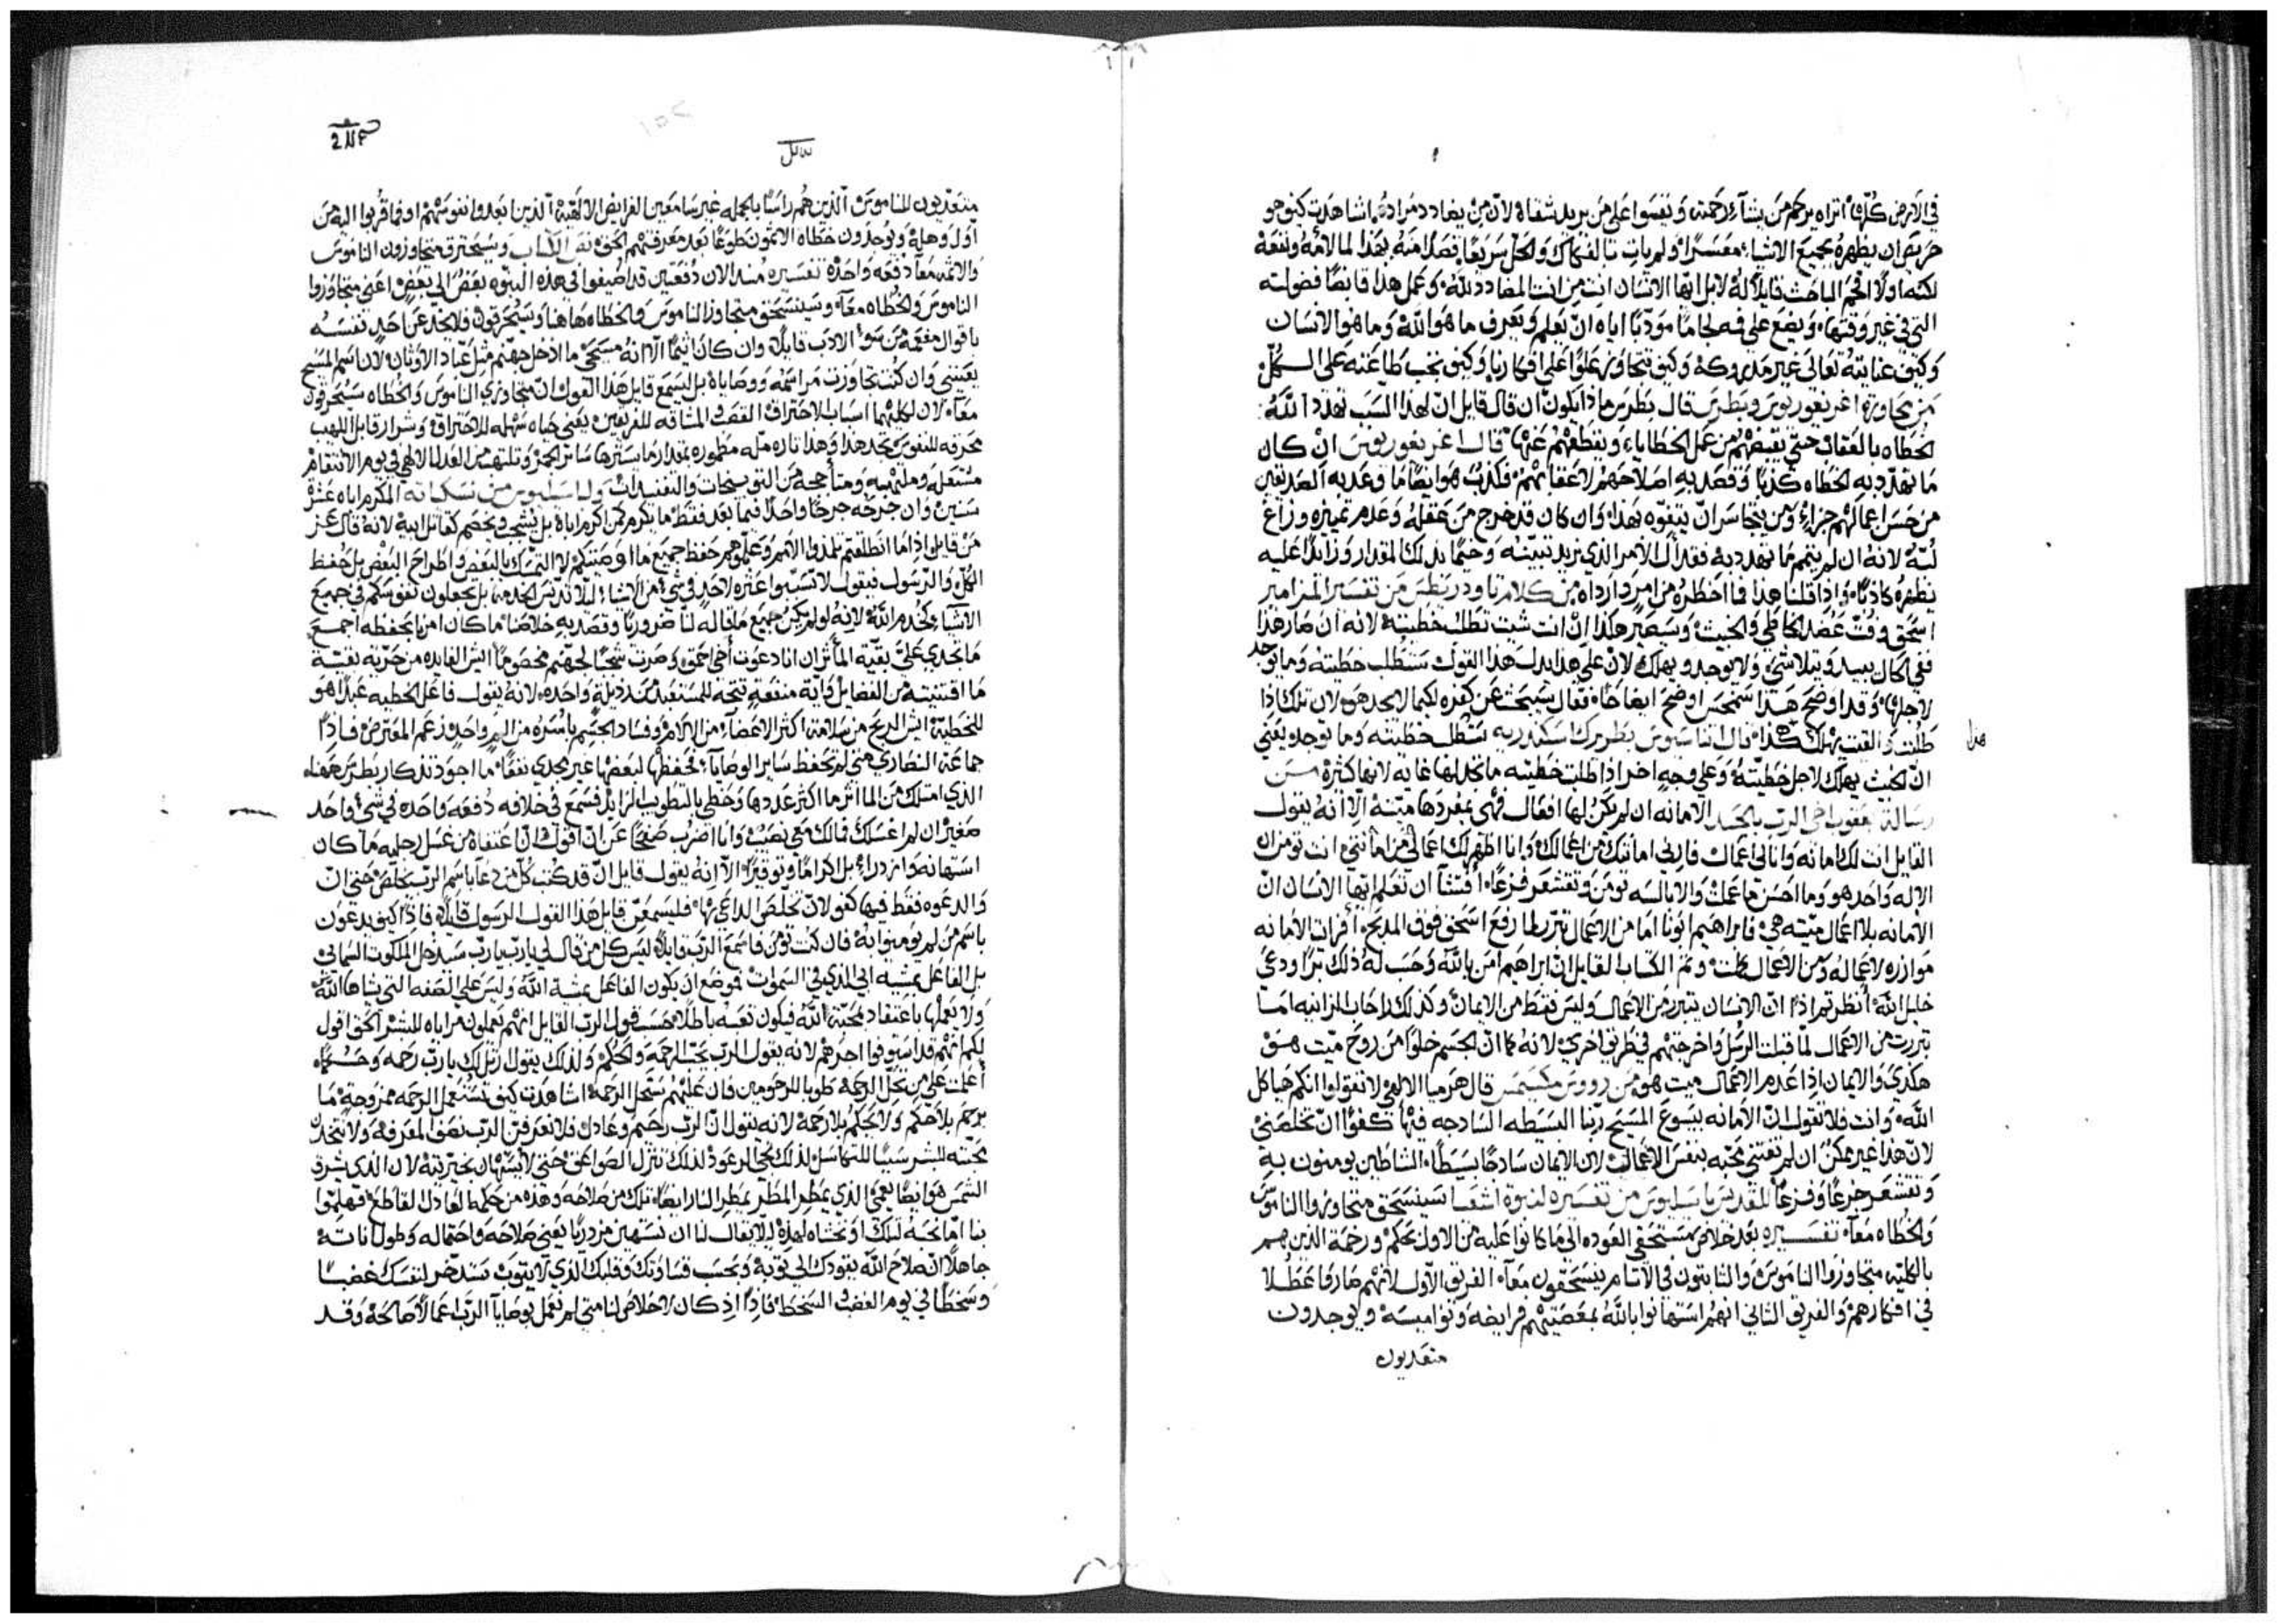 في الارض كلها اتراه يرحم من يشآء رحمته ويقسوا على من يريد شقاه لان من يضادد مراده اشاهدت كيف هو
حريص ان يظهره بجميع الاشياء مفسرًا ولم يات
لكنه اولًا افحم الباحث قايلًا له لا بل ايها الانسان انت من انت المضادد لله وعمل هذا قابضًا فضوليته
التي في غير وقتها ويضع على فمه لجامًا مؤدبًا اياه ان يعلم ويعرف ما هو الله وما هو الانسان
وكيف عنايته تعالى غير مدروكه وكيف تتجاوز علوًا على افكارنا وكيف تجب طاعته على الكل
من محاورة اغريغوريوس وبطرس قال بطرس ماذا يكون ان قال قايل ان لهذا السبب تهدد الله
الخطاه بالعقاب حتى يقبضهم من عمل الخطايا ويقطعهم عنها قال اغريغوريوس ان كان
ما تهدد به الخطاه كذبًا وقصد به اصلاحهم لا عقابهم فكذب هو ايضًا ما وعد به الصديقين
من حسن اعمالهم جزاء ومن يتجاسر ان يتفوه بهذا وان كان قد خرج من عقله وعدم تمييزه وزاغ
لبه لانه ان لم يتمم ما تهدد به فقد ان الامر الذي نريد تبيينه وحيثما بدلك المقدار وزايدًا عليه
نظهره كاذبًا واذا قلنا هذا فما اخطره من امر وارداه من كلام تاودريطس من تفسير المزامير
اسحق وفتّ عضد الخاطي والخبيث وسيصير هكذا ان انت شيت تطلب خطيته لانه ان صار هذا
ففي الحال يبيد ويتلاشى ولا يوجد ويهلك لان على هذا يدل هذا القول ستطلب خطيته وما توجد
لاجلها وقد اوضح هذا سمخس اوضح ايضاحًا فقال سيبحث عن كفره لكيما لا يجد هو لان تلك اذا
طلبت والفيت يهلك هذا قال اثناسيوس بطريرك اسكندريه ستطلب خطيته وما توجد يعني
هذا
ان الخبيث يهلك لاجل خطيته وعلى وجه اخر اذا طلبت خطيته ما تجد لها غايه لانها كثيرة من
رسالة يعقوب اخي الرب بالجسد الامانه ان لم يكن لها افعال فهي بمفردها ميتة الا انه يقول
القايل انت لك امانه وانا لي اعمال فارني امانتك من اعمالك وانا اظهر لك اعمالي من امانتي انت تومن ان
الاله واحد هو وما احسن ما عملت والابالسه تومن وتقشعر فزعًا افتشآ ان تعلم ايها الانسان ان
الامانه بلا اعمال ميته هي فابراهيم ابونا اما من الاعمال تبرر لما رفع اسحق فوق المذبح افرايت الامانه
موازره لاعماله ومن الاعمال كملت وتم الكتاب القايل ان ابراهيم امن بالله وحسب له ذلك برًا ودعي
خليل الله انظرتم اذًا ان الانسان يتبرر من الاعمال وليس فقط من الايمان وكذلك راحاب الزانيه اما
تبررت من الاعمال لما قبلت الرسل واخرجتهم في طريق اخرى لانه كما ان الجسم خلوًا من روح ميت هو
هكذى والايمان اذا عدم الاعمال ميت هو من رووس مكسيمس قال هرميا الالهي لا تقولوا انكم هياكل
الله وانت فلا تقول ان الامانه بيسوع المسيح ربنا البسيطه الساذجه فيها كفوًا ان تخلصني
لان هذا غير ممكن ان لم تقتني محبته بنفس الاعمال لان الايمان ساذجًا بسيطًا الشياطين يومنون به
وتقشعر جزعًا وفزعًا للقديس باسليوس من تفسيره لنبوة اشعيا سينسحق متجاوزوا الناموس
والخطاه معآ تفسيره بعد خلاص مستحقي العوده الى ما كانوا عليه من الاول بحكم ورحمة الذين هم
بالكليه متجاوزوا الناموس والثابتون في الاثام ينسحقون معآ الفريق الاول لانهم صاروا عطلا
في افكارهم والفريق الثاني انهم استهانوا بالله بمعصيتهم فرايضه ونواميسه ويوجدون
متعديون
متعديون للناموس الذين هم راسًا بالجمله غير سامعين الفرايض الالهية الذين ابعدوا نفوسهم او فما قربوا اليه من
اول وهلة ويوجدون خطاه الاثمون طوعًا بعد معرفتهم الحق نص الكتاب وسيحترق متجاوزون الناموس
والاثمه معآ دفعه واحدة تفسيره مند الان دفعتين قد اضيفوا في هذه النبوه بعض الى بعض اعني متجاوزوا
الناموس والخطاه معآ وسينسحق متجاوزوا الناموس والخطاه هاهنا وسيحرقون فلا يخدعن احد نفسه
باقوال مفعمة من سوء الادب قايلًا وان كان اثيمًا الا انه مسيحي ما ادخل جهنم مثل عباد الاوثان لان اسم المسيح
يعينني وان كنت تجاوزت مراسمه ووصاياه بل ليسمع قايل هذا القول ان متجاوزي الناموس والخطاه سيحرقون
معآ لان لكليهما اسباب الاحتراق
مشتعله وملتهبه ومتأججه من التوبيخات والتفنيدات
سنين وان جرحه جرحًا واحدًا فيما بعد فقط ما يكرم كمن اكرم اياه بل يشجب ويخصم كقاتل ابيه لانه قال عز
من قايل اذا ما انطلقتم تلمذوا الامم وعلموهم حفظ جميع ما اوصيتكم لا التمسك بالبعض واطراح البعض بل حفظ
الكل والرسول فيقول لا تسببوا عثره لاحد في شيء من الاشيا ليلا تدنس الخدمه بل يجعلون نفوسكم في جميع
الاشيآء كخدم الله لانه لو لم يكن جميع ما قاله لنا ضروريًا وقصد به خلاصنا ما كان امرنا بحفظه اجمع
ما تجدي علي بقية المآثر ان انا دعوت اخي احمق وصرت شجبًا لجهنم مخصومًا ايش الفايده من حرية نفسه
ما اقتنيته من الفضايل واية منفعة تنتجه للمستعبد من رديلة واحده لانه يقول فاعل الخطيه عبدًا هو
للخطيه ايش الربح من سلامة اكثر الاعضآء من الالام وفساد الجسم باسره من الم واحد زعم المعترض فاذًا
جماعة النصارى متى لم تحفظ ساير الوصايآ فحفظها لبعضها غير مجدي نفعًا ما اجود تذكار بطرس
الذي امتلك من المآثر ما اكثر عددها وحظي بالتطويب الزايد فسمع في خلافه دفعه واحده في شي واحد
صغير ان لم اغسلك فما لك معي نصيب وانا اضرب صفحًا عن ان اقول ان اعتفاه من غسل رجليه ما كان
استهانه وازدراء بل اكرامًا وتوقيرًا الا انه يقول قايل ان قد كتب كل من دعا باسم الرب يخلص حتى ان
والدعوه فقط فيها كفو لان تخلص الداعي بها فليسمعن قايل هذا القول الرسول قايلًا فاذًا كيف يدعون
باسم من لم يومنوا به فان كنت تومن فاسمع الرب قايلًا ليس كل من قال لي يارب يارب سيدخل الملكوت السماوي
بل الفاعل بمشية ابي الذي في السموات
ولا يعملها باعتقاد بمحبة الله فيكون تعبه باطلًا حسب قول الرب القايل انهم يعملون مراياه للبشر الحق اقول
لكم انهم قد استوفوا اجرهم لانه يقول الرب يحب الرحمة والحكم ولذلك يقول ارتل لك يارب رحمه وحكمًا
أعلمت على من تحل الرحمة طوبا للرحومين فان عليهم ستحل الرحمة اشاهدت كيف تستعمل الرحمه ممزوجة ما
يرحم بلا حكم ولا يحكم بلا رحمة لانه يقول ان الرب رحيم وعادل فلا نعرفن الرب نصف المعرفة ولا نتخذن
محبته للبشر سببًا للتهاسل لذلك تجي الرعود لذلك تنزل الصواعق حتى لا يستهان بخيريته لان الذي يشرق
الشمس هو ايضًا يعمي الذي يمطر المطر يمطر النار ايضًا تلك من صلاحه وهذه من حكمه العادل القاطع فهلموا
بنا اما نحبه لتلك او نخشاه لهذه ليلا يقال لنا ان تستهين مزدريًا بغنى صلاحه واحتماله وطول اناته
جاهلًا ان صلاح الله يقودك الى توبة وبحسب قساوتك وقلبك الذي لا يتوب تستدخر لنفسك غضبًا
وسخطًا في يوم الغضب والسخط فاذًا اذ كان لا خلاص لنا متى لم نعمل بوصايآ الرب اعمالًا صالحة وقد